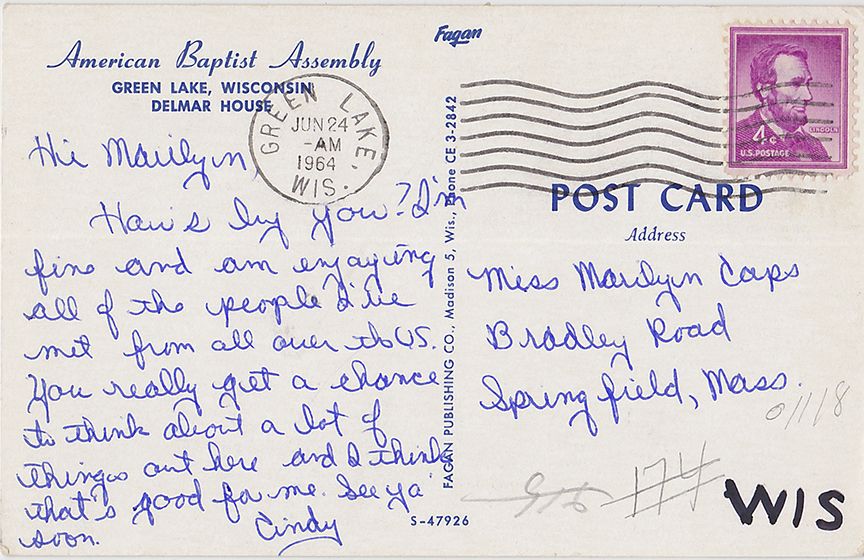 American Baptist Assembly
GREEN LAKE, WISCONSIN
DELMAR HOUSE
GREEN LAKE, WIS.
JUN 24
-AM
1964
Hi Marilyn,
How's by you? I'm
fine and am enjoying
all of the people I've
met from all over the US.
You really get a chance
to think about a lot of
things out here and I think
that's good for me. See ya
soon.
Cindy
S-47926
FAGAN PUBLISHING CO., Madison 5, Wis., Phone CE 3-2842
Fagan
LINCOLN
4¢
U.S. POSTAGE
POST CARD
Address
Miss Marilyn Caps
Bradley Road
Springfield, Mass.
01118
174
WIS